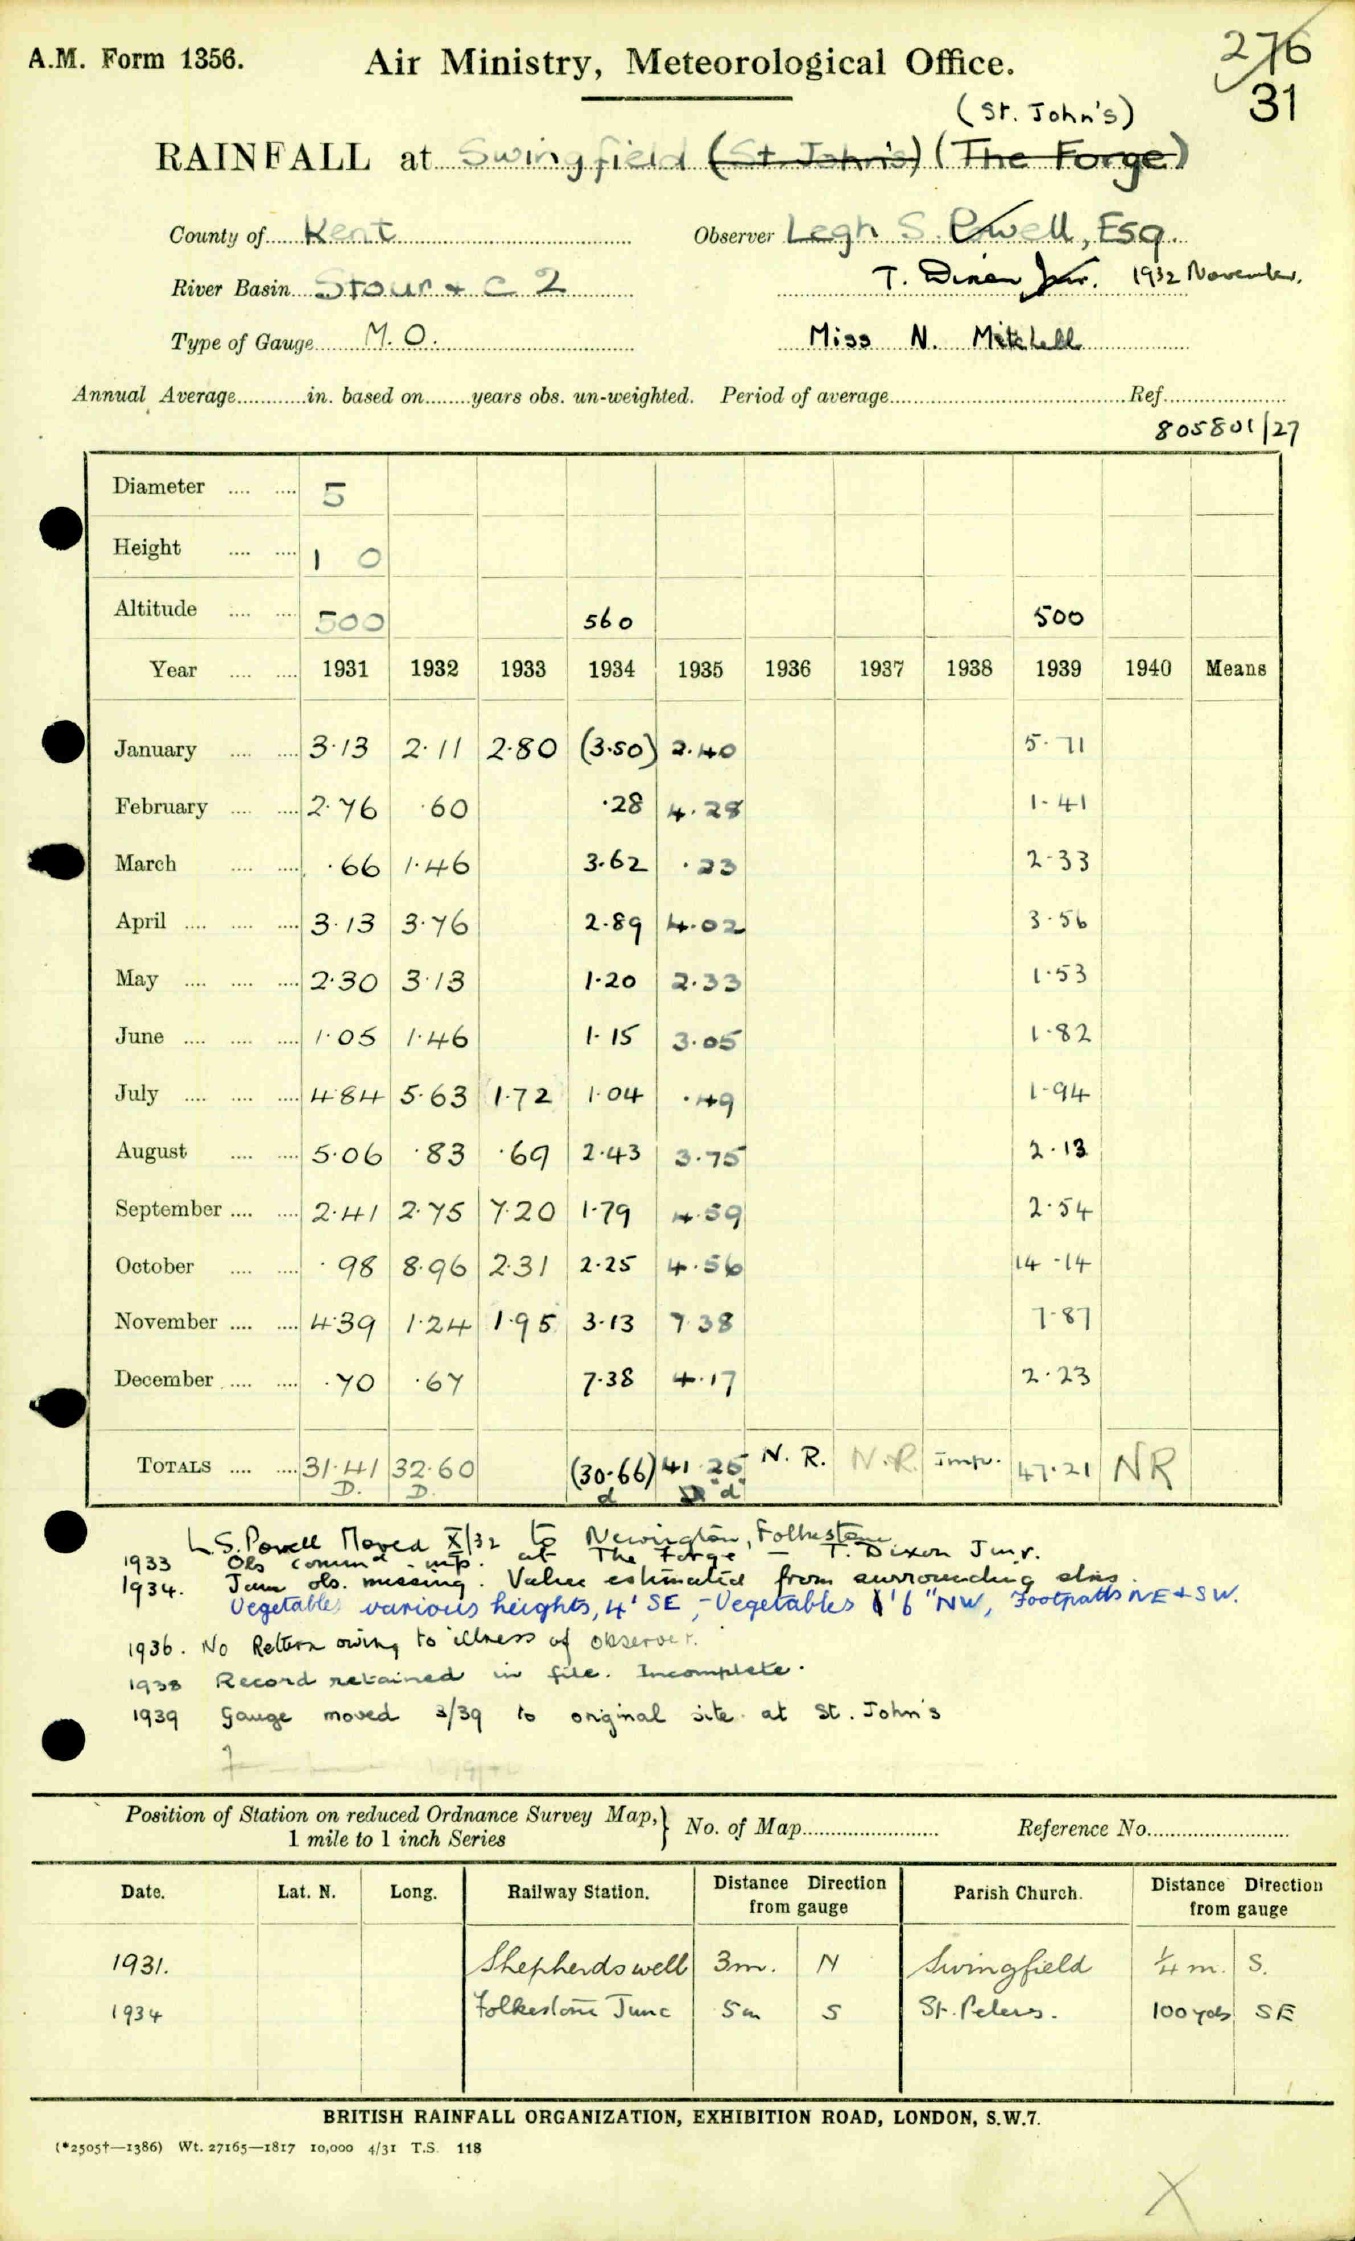 A.M. Form 1356.
Air Ministry, Meteorological Office.
276
31
(St. John's)
RAINFALL at Swingfield (St. John's) (The Forge)
County of Kent
Observer Legh S. Powell, Esq.
River Basin Stour & C 2
T. Dixon Jnr. 1932 November.
Type of Gauge M.O.
Miss N. Mitchell
Annual Average............in. based on........years obs. un-weighted. Period of average.................... Ref....................
805801/27
Diameter .... .... 5
Height .... .... 1 0
Altitude .... .... 500 560 500
Year .... .... 1931 1932 1933 1934 1935 1936 1937 1938 1939 1940 Means
January .... .... 3.13 2.11 2.80 (3.50) 2.40 5.71
February .... .... 2.76 .60 .28 4.28 1.41
March .... .... .66 1.46 3.62 .23 2.33
April .... .... .... 3.13 3.76 2.89 4.02 3.56
May .... .... .... 2.30 3.13 1.20 2.33 1.53
June .... .... .... 1.05 1.46 1.15 3.05 1.82
July .... .... .... 4.84 5.63 1.72 1.04 .49 1.94
August .... .... 5.06 .83 .69 2.43 3.75 2.13
September .... .... 2.41 2.75 7.20 1.79 4.59 2.54
October .... .... .98 8.96 2.31 2.25 4.56 14.14
November .... .... 4.39 1.24 1.95 3.13 7.38 7.87
December .... .... .70 .67 7.38 4.17 2.23
TOTALS .... .... 31.41 32.60 (30.66) 41.25 N.R. N.R. Imp. 47.21 NR
D. D. d d
L.S. Powell Moved X/32 to Newington, Folkestone
1933 Obs commd imp. at The Forge – T. Dixon Jnr.
1934. Jan obs. missing. Value estimated from surrounding stns.
Vegetables various heights, 4' SE, - Vegetables 1'6" NW, Footpaths NE + SW.
1936. No Return owing to illness of observer.
1938 Record retained in file. Incomplete.
1939 Gauge moved 3/39 to original site at St. John's
Position of Station on reduced Ordnance Survey Map, 1 mile to 1 inch Series } No. of Map........................ Reference No.........................
Date. Lat. N. Long. Railway Station. Distance Direction from gauge Parish Church. Distance Direction from gauge
1931. Shepherdswell 3m. N Swingfield ¼ m. S.
1934 Folkestone Junc 5m S St. Peters. 100 yds SE
BRITISH RAINFALL ORGANIZATION, EXHIBITION ROAD, LONDON, S.W.7.
(*2505†—1386) Wt. 27165—1817 10,000 4/31 T.S. 118
X